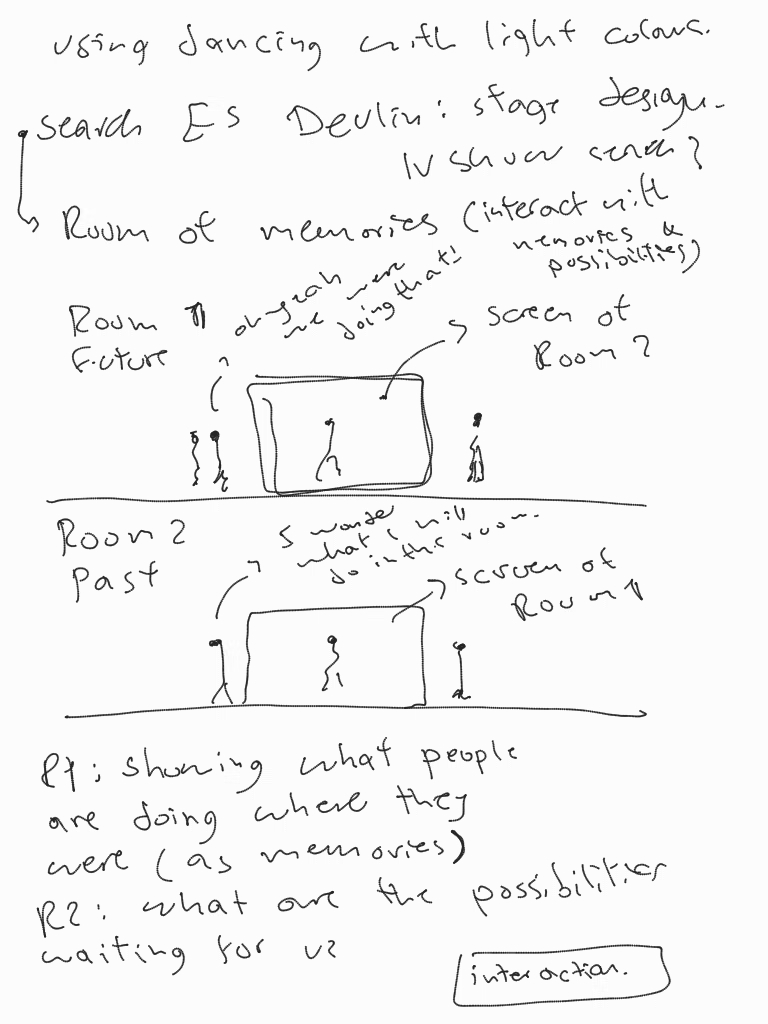 using dancing with light colour.
search Es Devlin: stage design.
TV show screen?
Room of memories (interact with
memories &
possibilities)
Room 1
Future
oh yeah
we were
doing that!
screen of
Room 2
Room 2
Past
I wonder
what I will
do in this room.
screen of
Room 1
R1: showing what people
are doing where they
were (as memories)
R2: what are the possibilities
waiting for us
interaction.